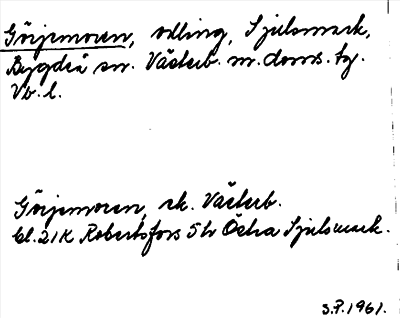 Görjemoren, odling, Sjulsmark,
Bygdeå sn. Västerb. m. doms. tg.
Vb. l.
Görjemoren, ek. Västerb.
bl. 21K Robertsfors 5h Östra Sjulsmark.
S.P. 1961.